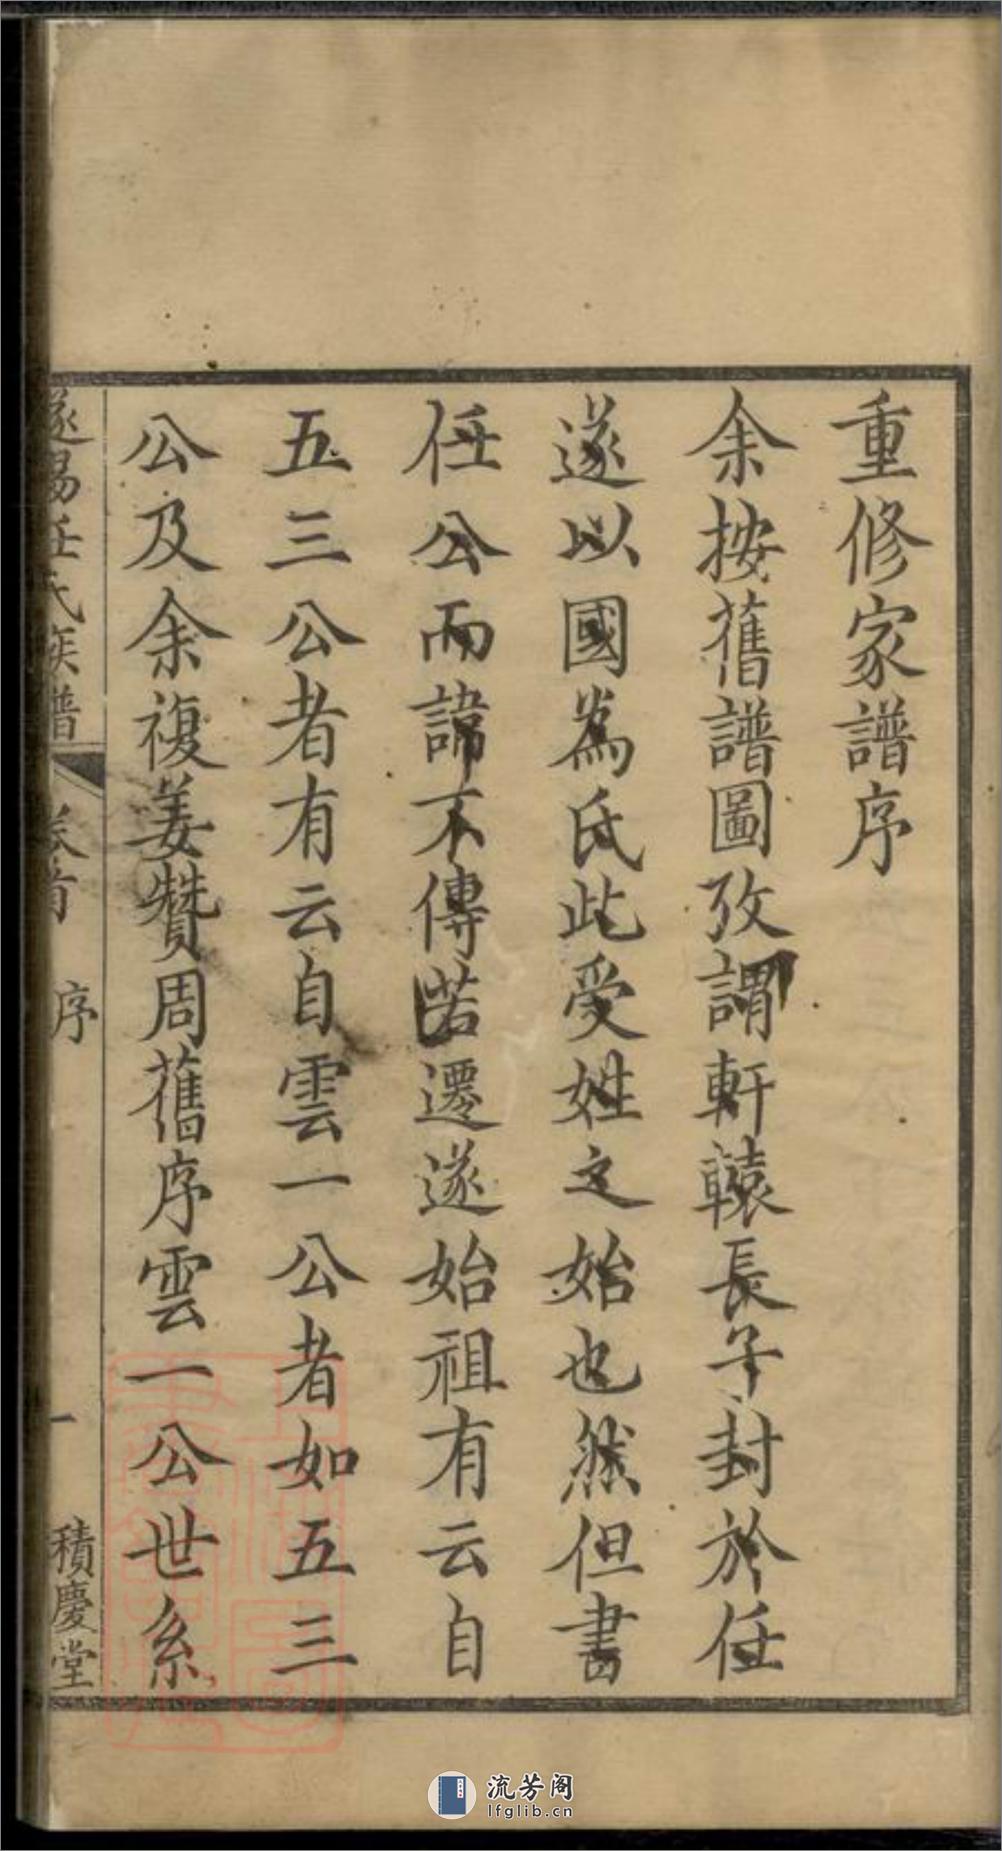 重修家譜序
余按舊譜圖攷謂軒轅長子封於任
遂以國為氏此受姓之始也然但書
任公而諱不傳若遷遂始祖有云自
五三公者有云自雲一公者如五三
公及余複姜贊周舊序雲一公世系
遂昜任氏族譜
卷首 序
一
積慶堂
流芳阁
lfglib.cn